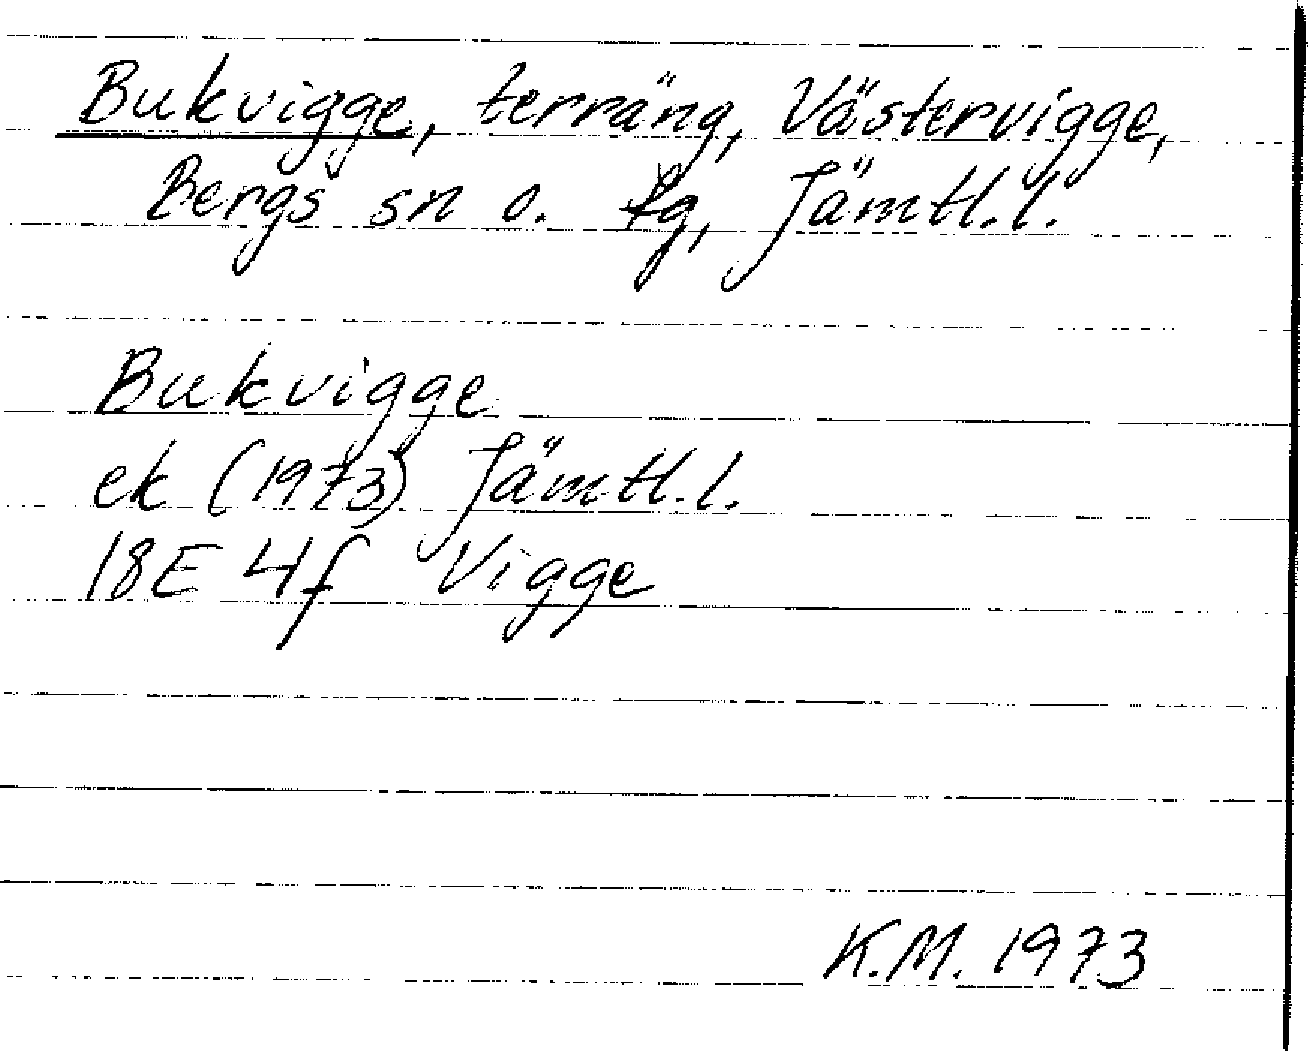 Bukvigge, terräng, Västervigge,
Bergs sn o. tg, Jämtl. l.
Bukvigge
ek (1973) Jämtl. l.
18E 4f Vigge
K.M. 1973